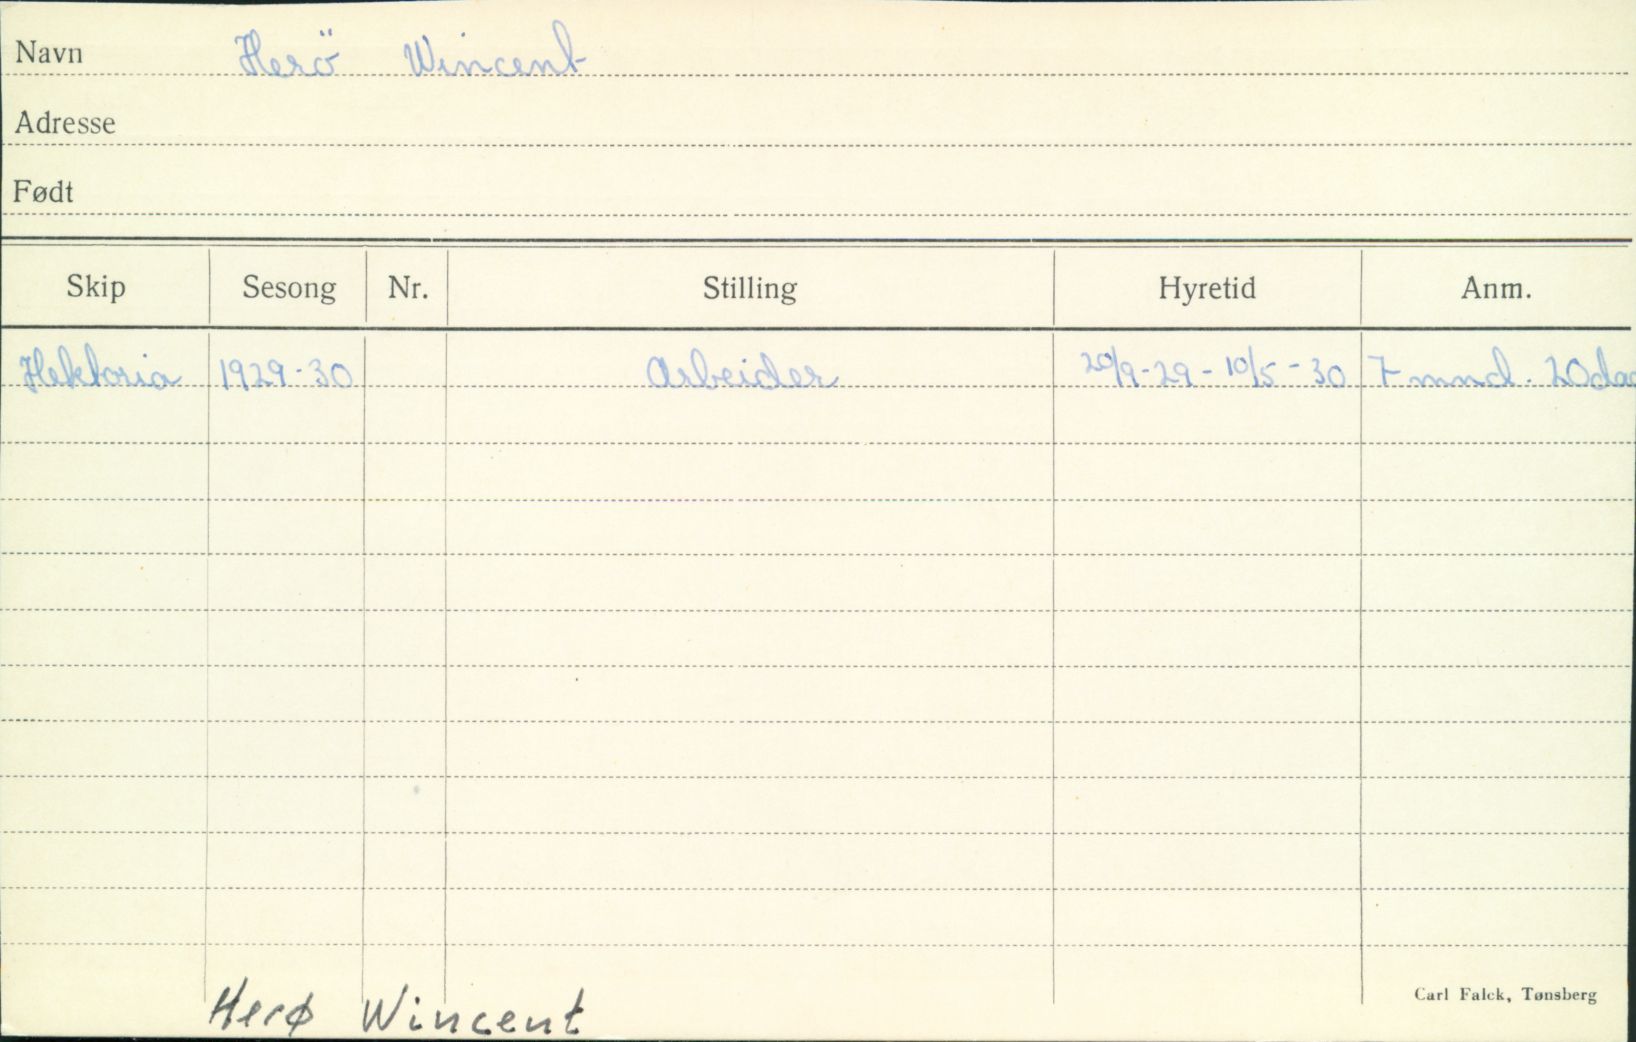 Navn Herö Wincent
Adresse
Født
Skip Sesong Nr. Stilling Hyretid Anm.
Hektoria 1929-30 Arbeider 20/9-29 - 10/5-30 7 mnd. 20 dag
Carl Falck, Tønsberg
Herø Wincent